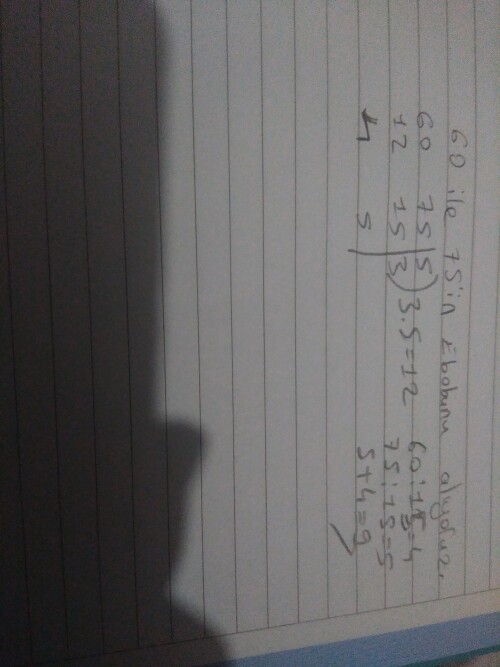 60 ile 75'in Ebobunu alıyoruz.
60 75 | 5 ) 3.5=12 60:15=4
12 15 | 3 75:15=5
4 5 | 5+4=9